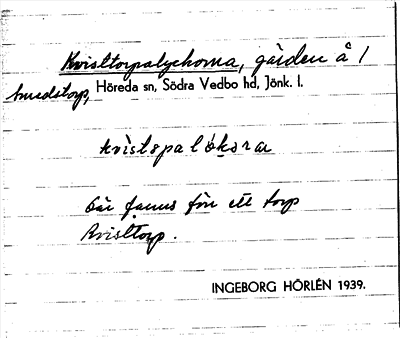 Kvisltorpalyckorna, gärden å 1
Smedstorp, Höreda sn, Södra Vedbo hd, Jönk. l.
kvistspalökara
Där fanns förr ett torp
Kvisltorp.
INGEBORG HÖRLÉN 1939.